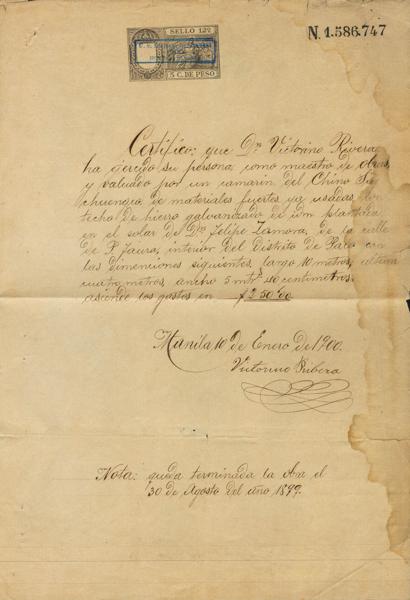 SELLO 12º
5 C. DE PESO
N. 1.586.747
Certifico: que Dn Victorino Rivera
ha ejercido su persona como maestro de obras,
y valuado por un camarin del Chino
de materiales fuertes ya usadas
techo de hierro galvanizado
en el solar de Dn Felipe Zamora, de la calle
de P. Faura, interior del Distrito de Paco con
las dimenciones siguientes, largo 10 metros, altura
cuatro metros, ancho 5 mtrs 40 centimetros.
asciende los gastos en $250.00
Manila 10 de Enero de 1900.
Victorino Ribera
Nota: queda terminada la obra el
30 de Agosto del año 1899.